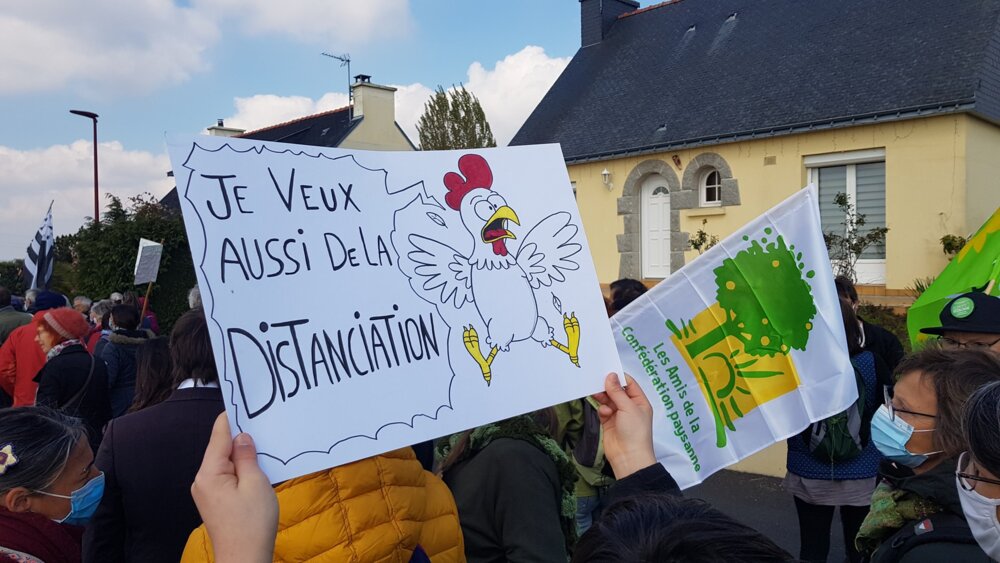 JE VEUX
AUSSI DE LA
DISTANCIATION
Les Amis de la
Confédération paysanne